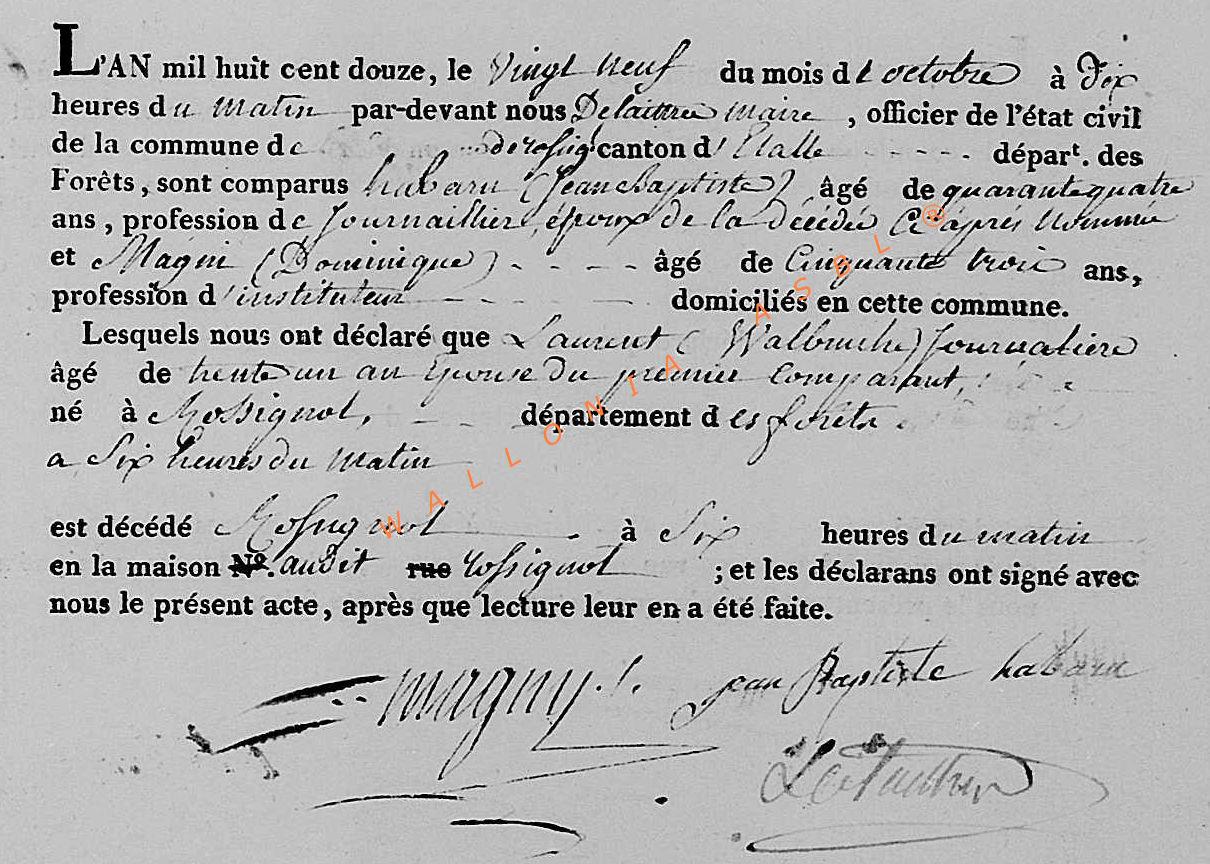 L'AN mil huit cent douze, le Vingt neuf du mois de octobre à Dix
heures du matin par-devant nous maire, officier de l'état civil
de la commune de de Rossig canton d'Etalle dépar^t. des
Forêts, sont comparus habaru (Jean Baptiste) âgé de quarante quatre
ans, profession de Journaillier, époux de la décédée Ci après Nommée
et Magni (Dominique) âgé de Cinquante trois ans,
profession d'instituteur domiciliés en cette commune.
Lesquels nous ont déclaré que Laurent (Walbruche) Journaliere
âgé de trente un an Epouse Du premier Comparant,
né à Rossignol, département des forêts
a Six heures du matin
est décédé Rossignol à Six heures du matin
en la maison N°. audit rue rossignol ; et les déclarans ont signé avec
nous le présent acte, après que lecture leur en a été faite.
magny jean Baptiste habaru
WALLONIA ASBL @